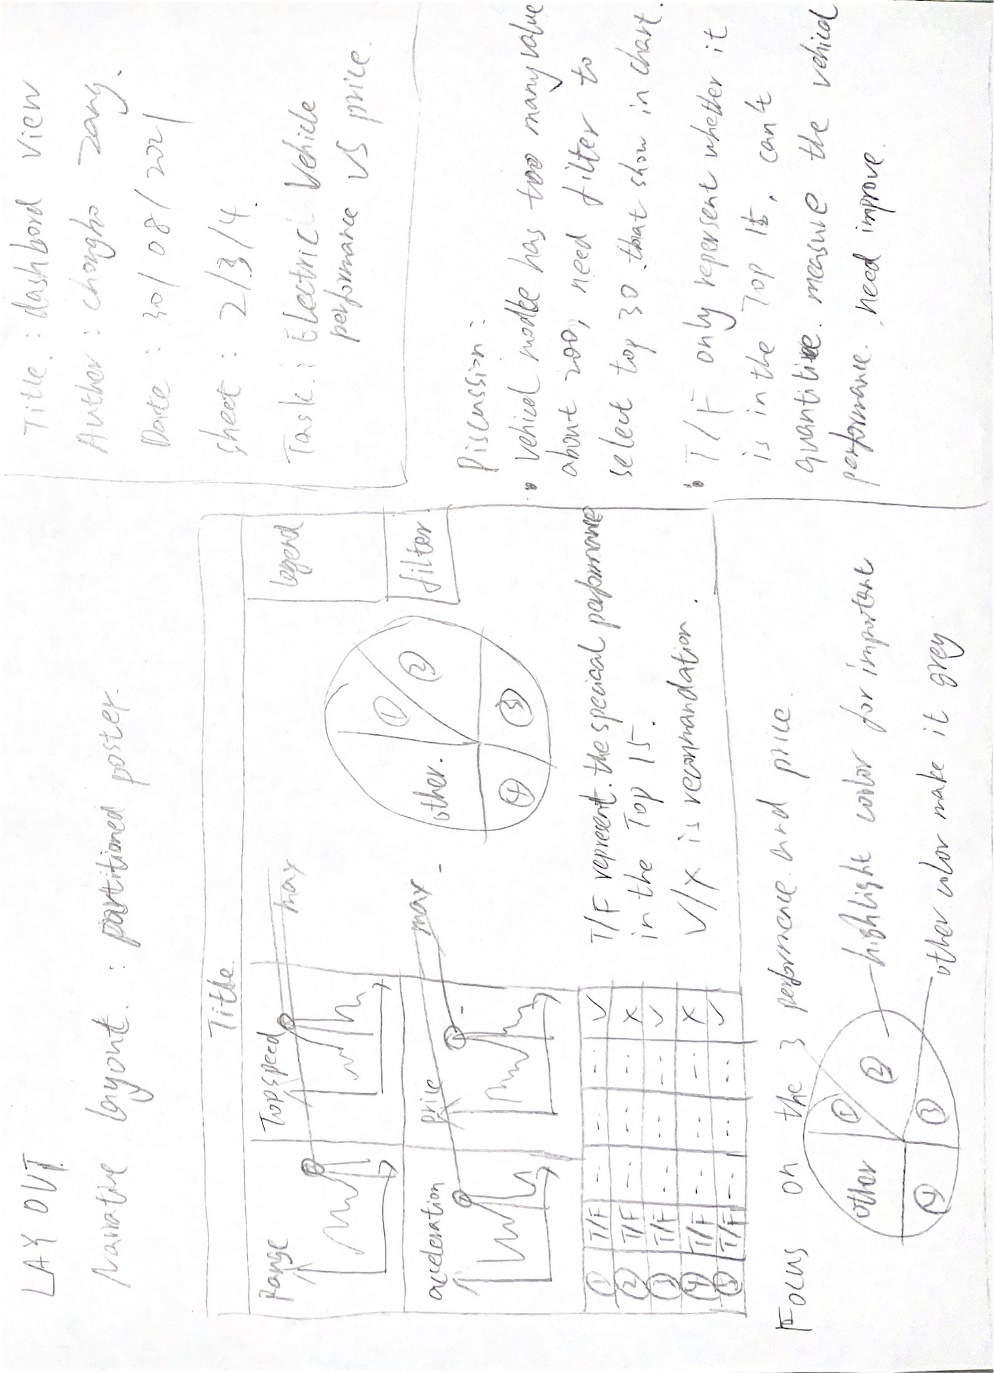 LAY OUT
Narrative layout : partitioned poster.
Title
Range
Top speed
max
acceleration
price
max
legend
filter
other.
①
②
③
④
① T/F -- -- -- ✓
② T/F -- -- -- ×
③ T/F -- -- -- ✓
④ T/F -- -- -- ×
⑤ T/F -- -- -- ✓
T/F represent the special performance
in the Top 15.
✓/× is recommandation.
Focus on the 3 performence and price.
other
①
②
③
④
highlight color for important
other color make it grey
Title : dashbord view
Author : chongbo
Date : 30/08/2021
Sheet : 2/3/4.
Task : Electric Vehicle
performance VS price.
Discussion :
• vehicd modle has too many value
about 200, need filter to
select top 30 that show in chart.
• T/F only repersent whether it
is in the Top 15, can't
quantitive measure the vehicd
performance. need improve.